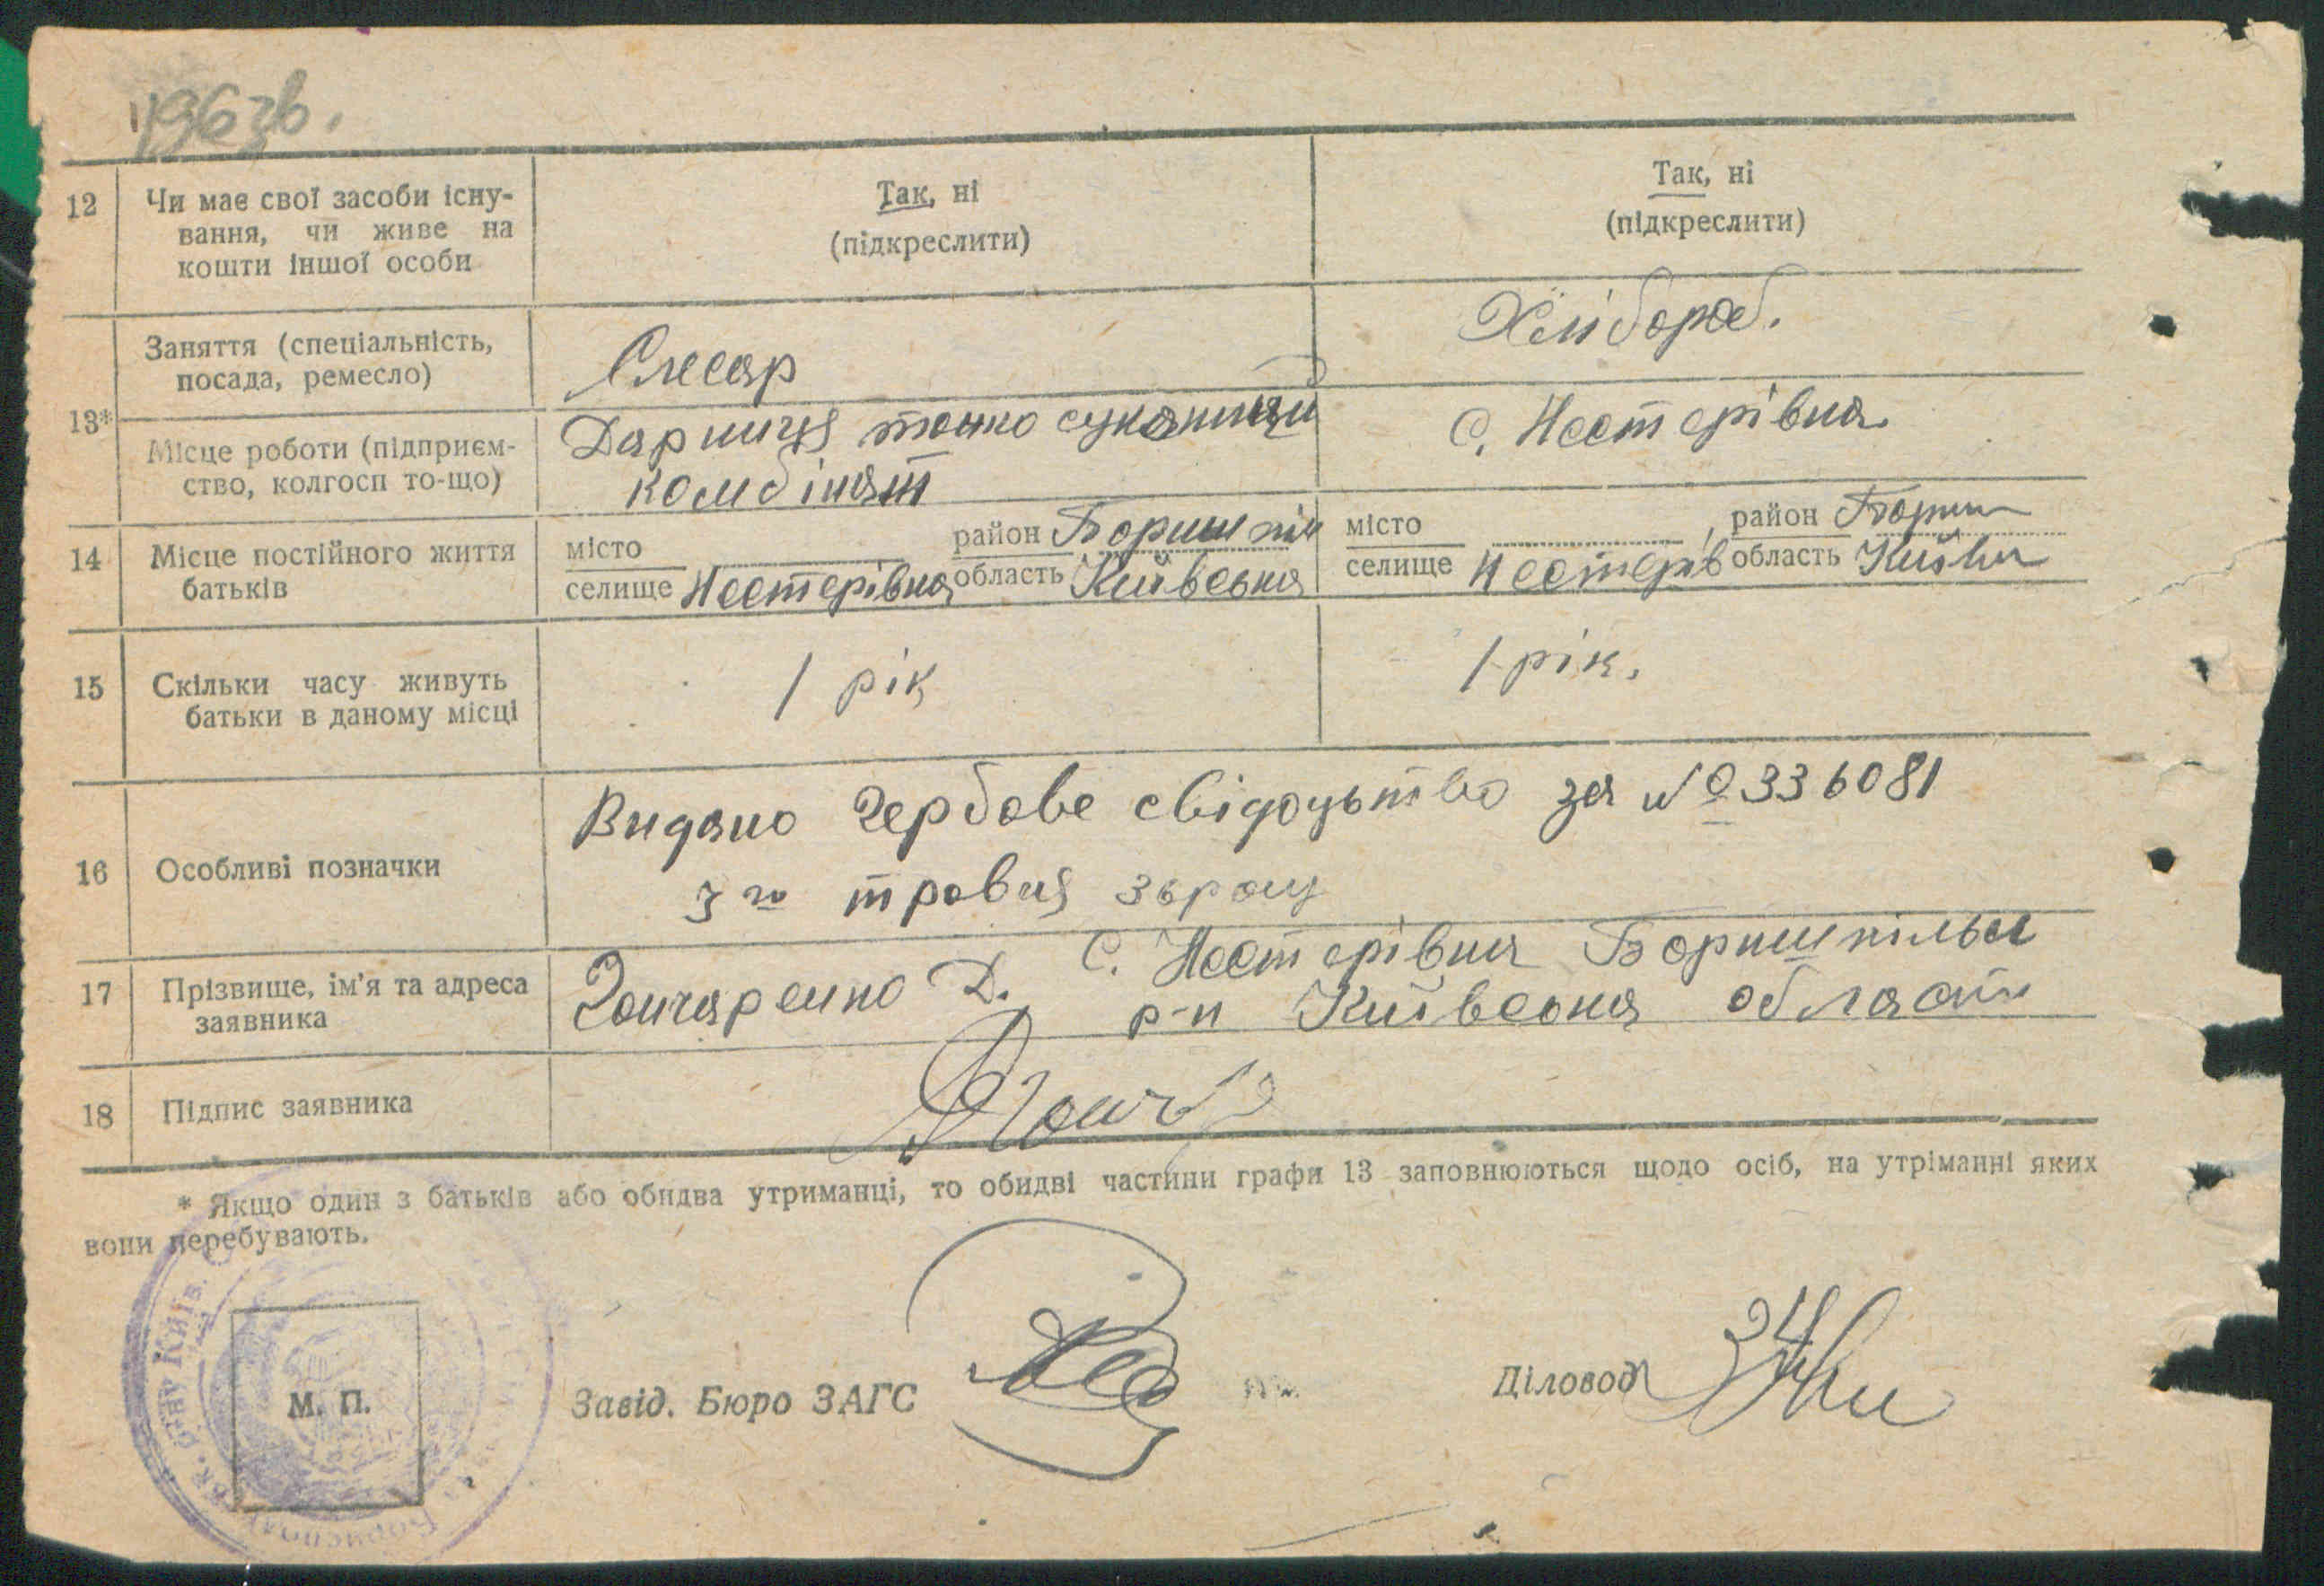 1963б.
12 Чи має свої засоби існу- Так, ні Так, ні
вання, чи живе на (підкреслити) (підкреслити)
кошти іншої особи
Заняття (спеціальність, Слесар Хлібороб.
посада, ремесло)
13* Місце роботи (підприєм- Дарниця тонко сукон С. Нестерівка
ство, колгосп то-що) комбінат
14 Місце постійного життя місто район Боришпіл місто , район Бориш
батьків селище Нестерівка область Київська селище Нестерів область Київ
15 Скільки часу живуть 1 рік 1 рік.
батьки в даному місці
16 Особливі позначки Видано гербове свідоцьтво за № 336081
3го травня
17 Прізвище, ім'я та адреса Гончаренко Д. С. Нестерівка Боришпільс
заявника р-н Київська област
18 Підпис заявника Гонч
* Якщо один з батьків або обидва утриманці, то обидві частини графи 13 заповнюються щодо осіб, на утріманні яких
вони перебувають.
М. П. Завід. Бюро ЗАГС Діловод